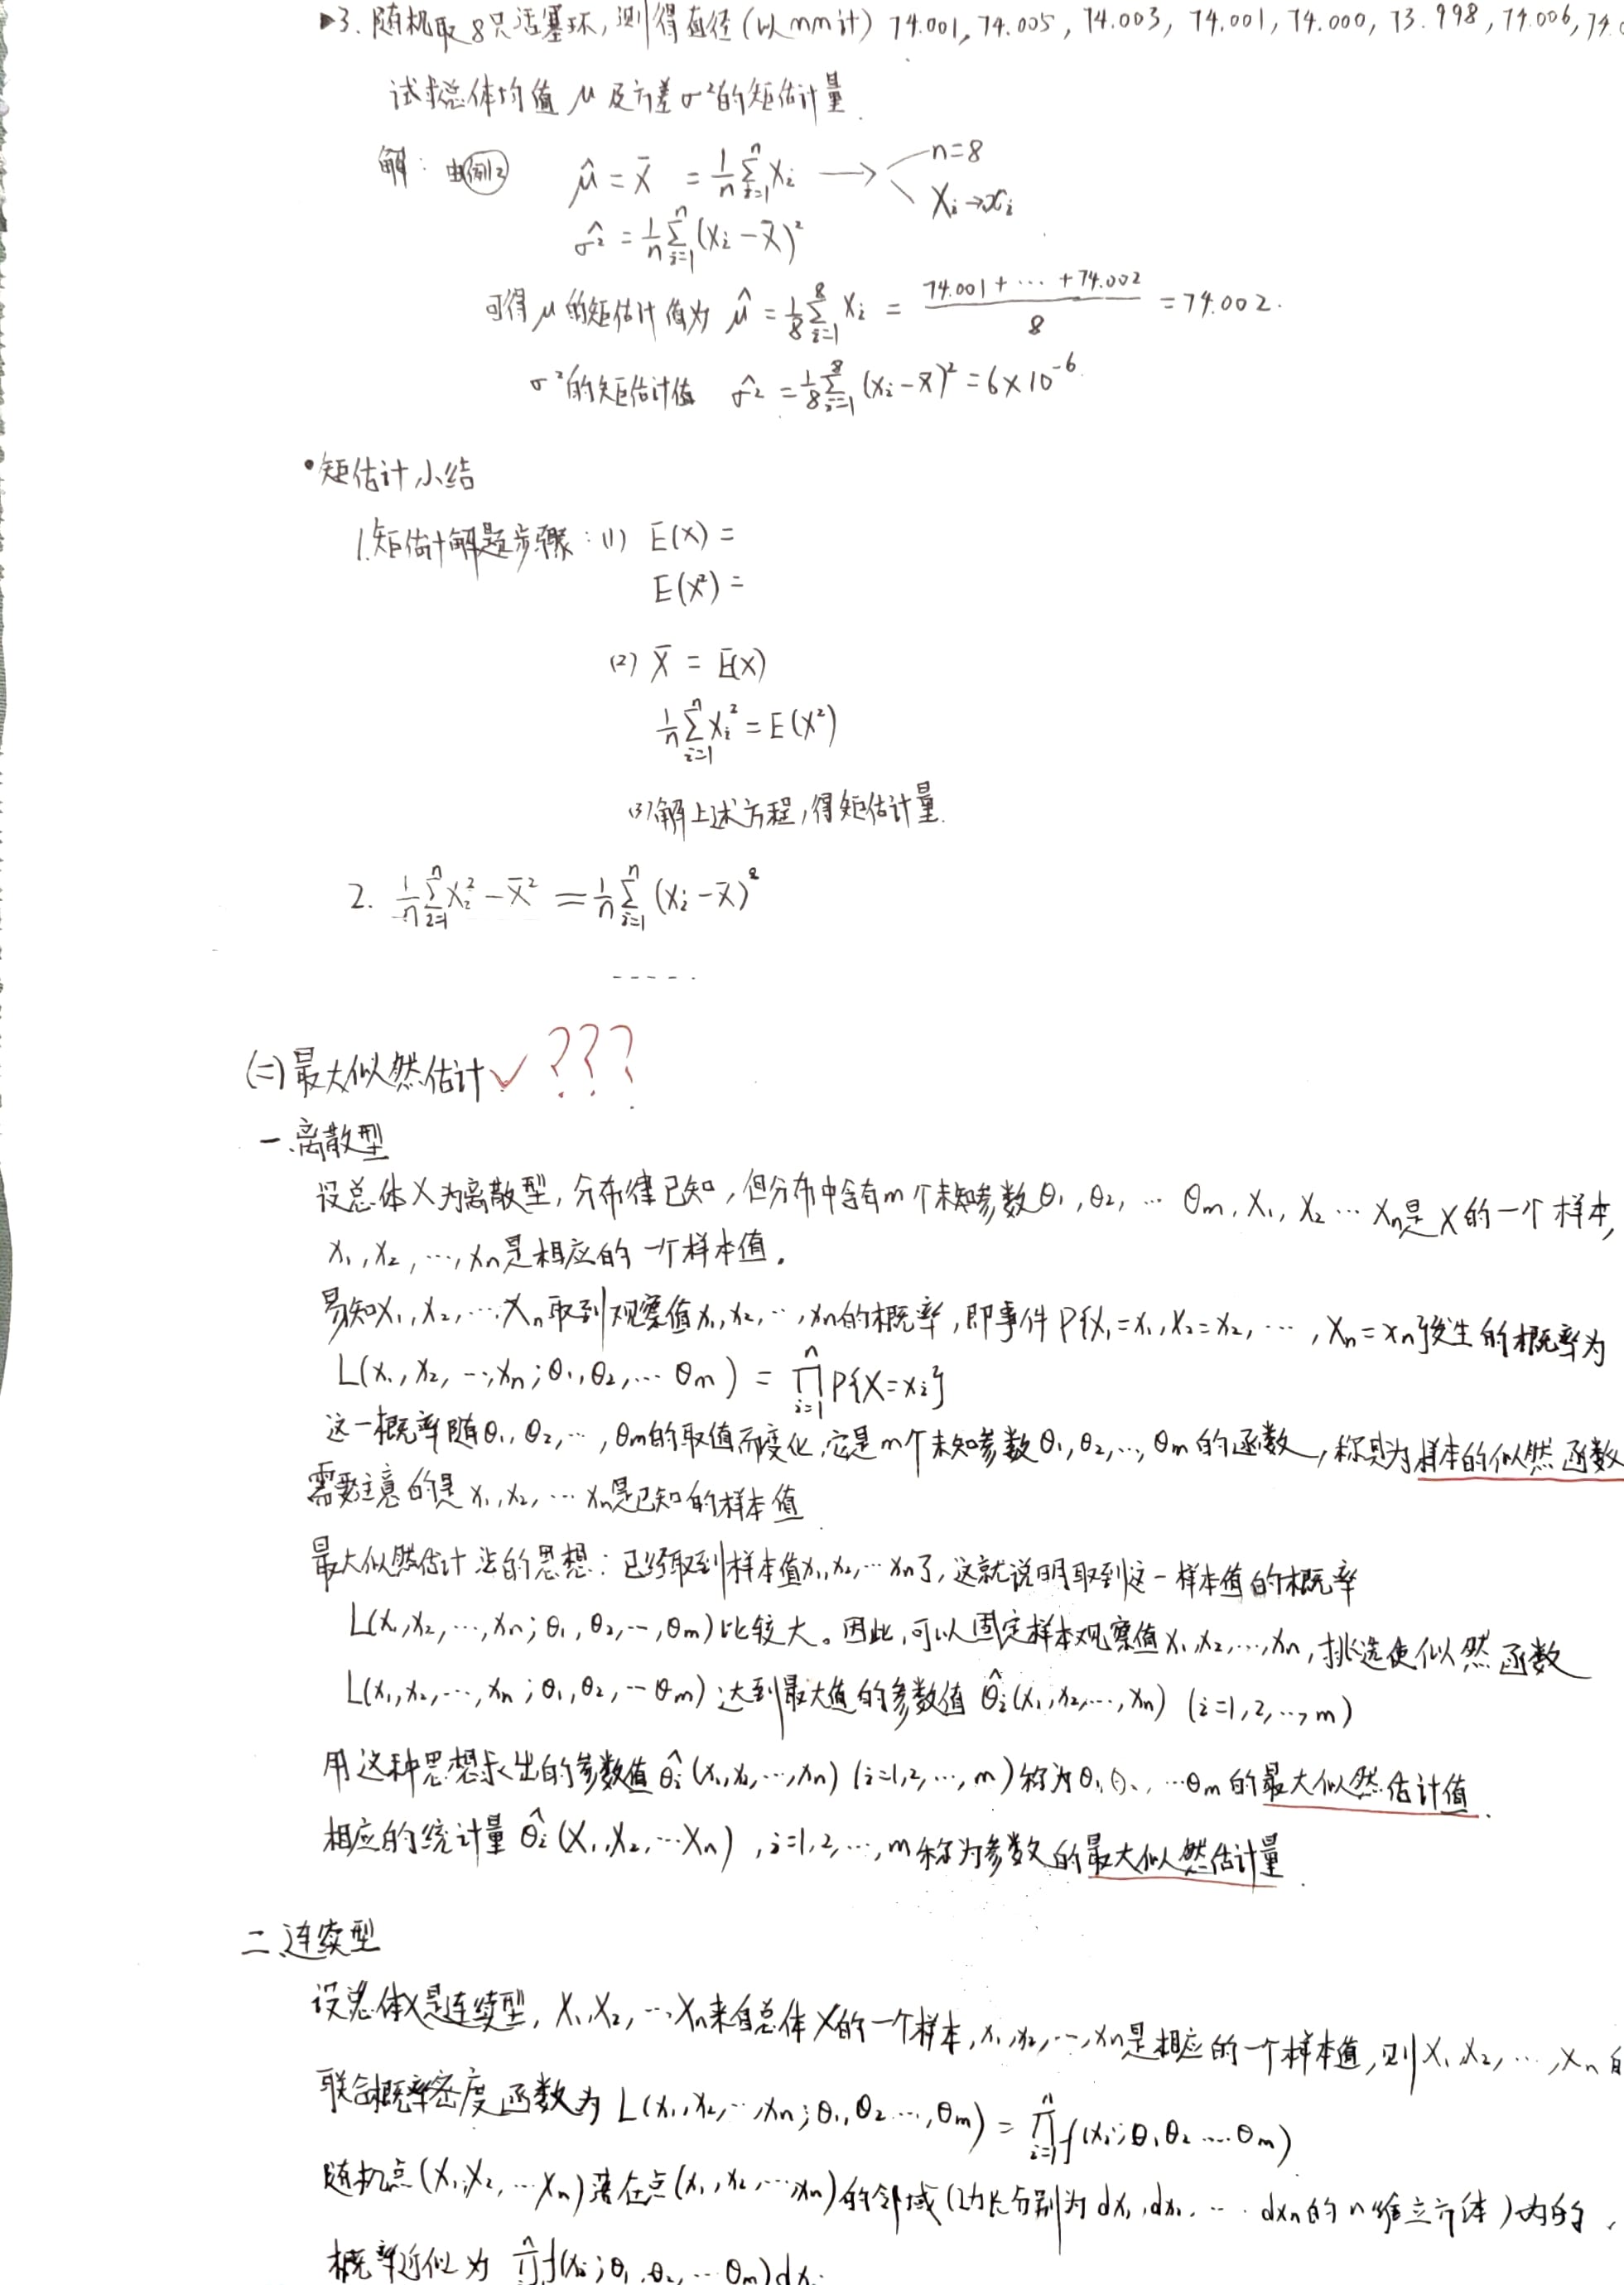 ▸3. 随机取8只活塞环,测得直径(以mm计) 74.001, 74.005, 74.003, 74.001, 74.000, 73.998, 74.006, 74.
试求总体均值 μ 及方差σ²的矩估计量.
解: 由例2 μ̂ = X̄ = 1/n ∑_{i=1}^{n} Xi ⟶ n=8
Xi→xi
σ̂² = 1/n ∑_{i=1}^{n} (Xi − X̄)²
可得μ的矩估计值为 μ̂ = 1/8 ∑_{i=1}^{8} Xi = (74.001 + ⋯ + 74.002)/8 = 74.002.
σ²的矩估计值 σ̂² = 1/8 ∑_{i=1}^{8} (xi − x̄)² = 6×10⁻⁶.
•矩估计小结
1.矩估计解题步骤: (1) E(X) =
E(X²) =
(2) X̄ = E(X)
1/n ∑_{i=1}^{n} Xi² = E(X²)
(3)解上述方程,得矩估计量.
2. 1/n ∑_{i=1}^{n} Xi² − X̄² = 1/n ∑_{i=1}^{n} (Xi − X̄)²
-----
(二)最大似然估计✓???
一.离散型
设总体X为离散型,分布律已知,但分布中含有m个未知参数θ₁, θ₂, ⋯ θm, X₁, X₂ ⋯ Xn是X的一个样本,
x₁, x₂, ⋯, xn是相应的一个样本值.
易知X₁, X₂, ⋯, Xn取到观察值x₁, x₂, ⋯, xn的概率,即事件P{X₁=x₁, X₂=x₂, ⋯, Xn=xn}发生的概率为
L(x₁, x₂, ⋯, xn; θ₁, θ₂, ⋯ θm) = ∏_{i=1}^{n} P{X=xi}
这一概率随θ₁, θ₂, ⋯, θm的取值而变化,它是m个未知参数θ₁, θ₂, ⋯, θm的函数,称其为样本的似然函数
需要注意的是x₁, x₂, ⋯ xn是已知的样本值.
最大似然估计法的思想:已经取到样本值x₁, x₂, ⋯ xn了,这就说明取到这一样本值的概率
L(x₁, x₂, ⋯, xn; θ₁, θ₂, ⋯, θm)比较大。因此,可以固定样本观察值x₁, x₂, ⋯, xn,挑选使似然函数
L(x₁, x₂, ⋯, xn; θ₁, θ₂, ⋯ θm)达到最大值的参数值 θ̂i(x₁, x₂, ⋯, xn) (i=1, 2, ⋯, m)
用这种思想求出的参数值θ̂i(x₁, x₂, ⋯, xn) (i=1, 2, ⋯, m)称为θ₁, θ₂, ⋯θm的最大似然估计值.
相应的统计量 θ̂i(X₁, X₂, ⋯Xn), i=1, 2, ⋯, m称为参数的最大似然估计量.
二.连续型
设总体X是连续型, X₁, X₂, ⋯Xn来自总体X的一个样本, x₁, x₂, ⋯, xn是相应的一个样本值,则X₁, X₂, ⋯, Xn
联合概率密度函数为 L(x₁, x₂, ⋯, xn; θ₁, θ₂ ⋯, θm) = ∏_{i=1}^{n} f(xi; θ₁ θ₂ ⋯ θm)
随机点(X₁, X₂, ⋯Xn)落在点(x₁, x₂, ⋯, xn)的邻域(边长分别为dx₁, dx₂, ⋯ dxn的n维立方体)内的
概率近似为 ∏ f(xi; θ₁, θ₂, ⋯ θm)dxi